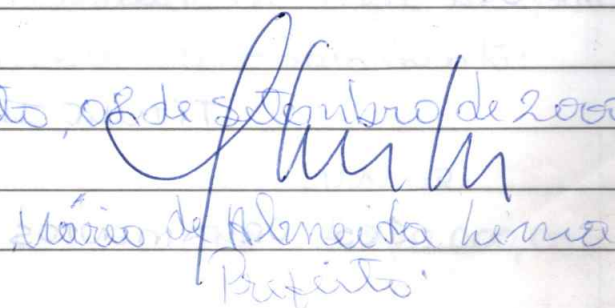 to, 08 de Setembro de 200
Mário de Almeida Lima
Prefeito.